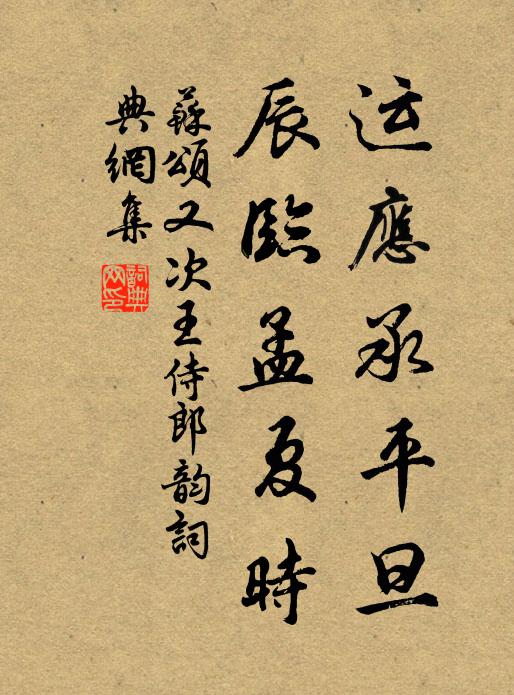 运應承平旦
辰臨孟夏時
蘇頌又次王侍郎韵詞
典網集
詞典网印